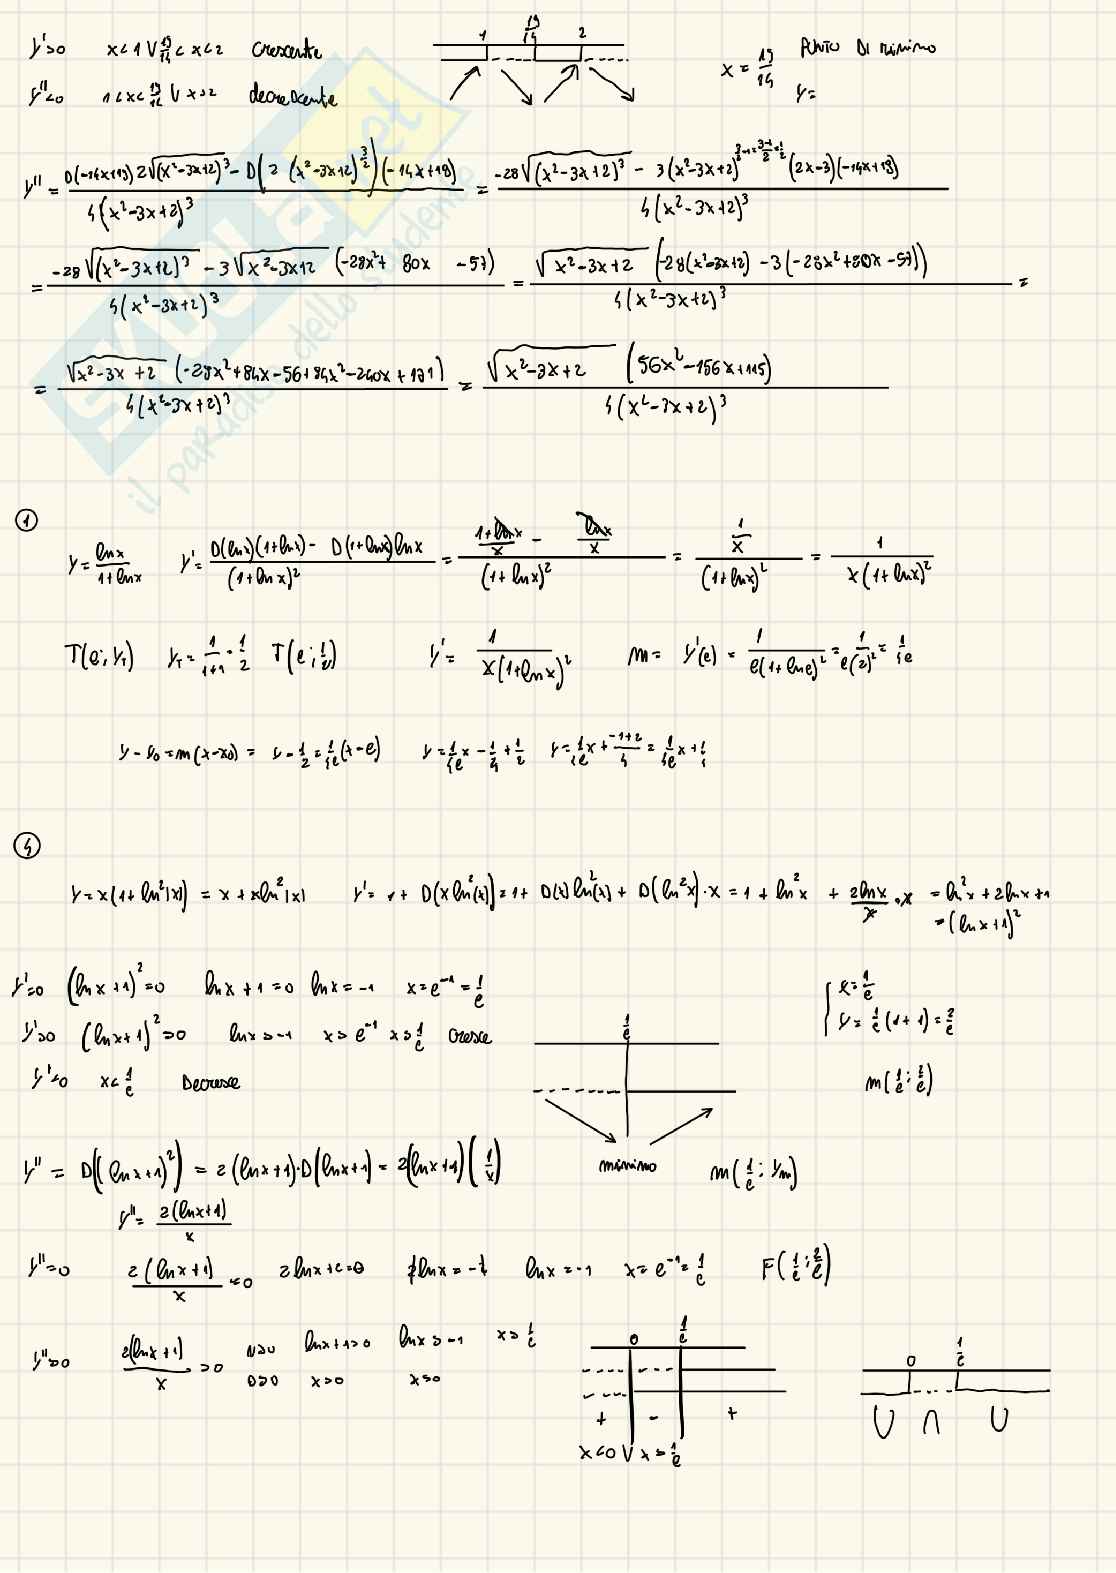 y'>0 x<1 ∨ 19/14 < x < 2 crescente
y''<0 1<x<19/14 ∨ x>2 decrescente
1 19/14 2
x = 19/14 PUNTO DI MINIMO
y=
y'' = D(-14x+19) 2√(x²-3x+2)³ - D(2 (x²-3x+2)^(3/2))(-14x+19) / 4(x²-3x+2)³ = -28√(x²-3x+2)³ - 3(x²-3x+2)^(3/2-1=3-1/2=1/2) (2x-3)(-14x+19) / 4(x²-3x+2)³
= -28√(x²-3x+2)³ - 3√x²-3x+2 (-28x²+ 80x -57) / 4(x²-3x+2)³ = √x²-3x+2 (-28(x²-3x+2) -3(-28x²+80x-57)) / 4(x²-3x+2)³ =
= √x²-3x+2 (-28x²+84x-56+84x²-240x+171) / 4(x²-3x+2)³ = √x²-3x+2 (56x²-156x+115) / 4(x²-3x+2)³
SKUOLA.net
il paradiso dello studente
①
y = lnx / 1+lnx y' = D(lnx)(1+lnx) - D(1+lnx)lnx / (1+lnx)² = 1+lnx/x - lnx/x / (1+lnx)² = 1/x / (1+lnx)² = 1 / x(1+lnx)²
T(e; y_T) y_T = 1/1+1 = 1/2 T(e; 1/2) y' = 1 / x(1+lnx)² m = y'(e) = 1 / e(1+lne)² = 1 / e(2)² = 1/4e
y-y₀=m(x-x₀) = y-1/2=1/4e(x-e) y=1/4e x - 1/4 + 1/2 y=1/4e x + -1+2/4 = 1/4e x + 1/4
④
y=x(1+ln²|x|) = x + xln²|x| y' = 1+ D(xln²(x)) = 1+ D(x) ln²(x) + D(ln²x)·x = 1 + ln²x + 2lnx/x · x = ln²x+2lnx+1
= (lnx+1)²
y'=0 (lnx+1)²=0 lnx+1=0 lnx=-1 x=e⁻¹=1/e
y'>0 (lnx+1)²>0 lnx>-1 x>e⁻¹ x>1/e Cresce
y'<0 x<1/e Decresce
1/e
minimo
{ x=1/e
y=1/e(1+1)=2/e
m(1/e; 2/e)
m(1/e; y_m)
y'' = D((lnx+1)²) = 2(lnx+1)·D(lnx+1) = 2(lnx+1)(1/x)
y'' = 2(lnx+1) / x
y''=0 2(lnx+1)/x =0 2lnx+2=0 2lnx=-2 lnx=-1 x=e⁻¹=1/e F(1/e; 2/e)
y''>0 2(lnx+1)/x >0 N>0 lnx+1>0 lnx>-1 x>1/e
D>0 x>0 x>0
0 1/e
+ - +
x<0 ∨ x>1/e
0 1/e
∪ ∩ ∪